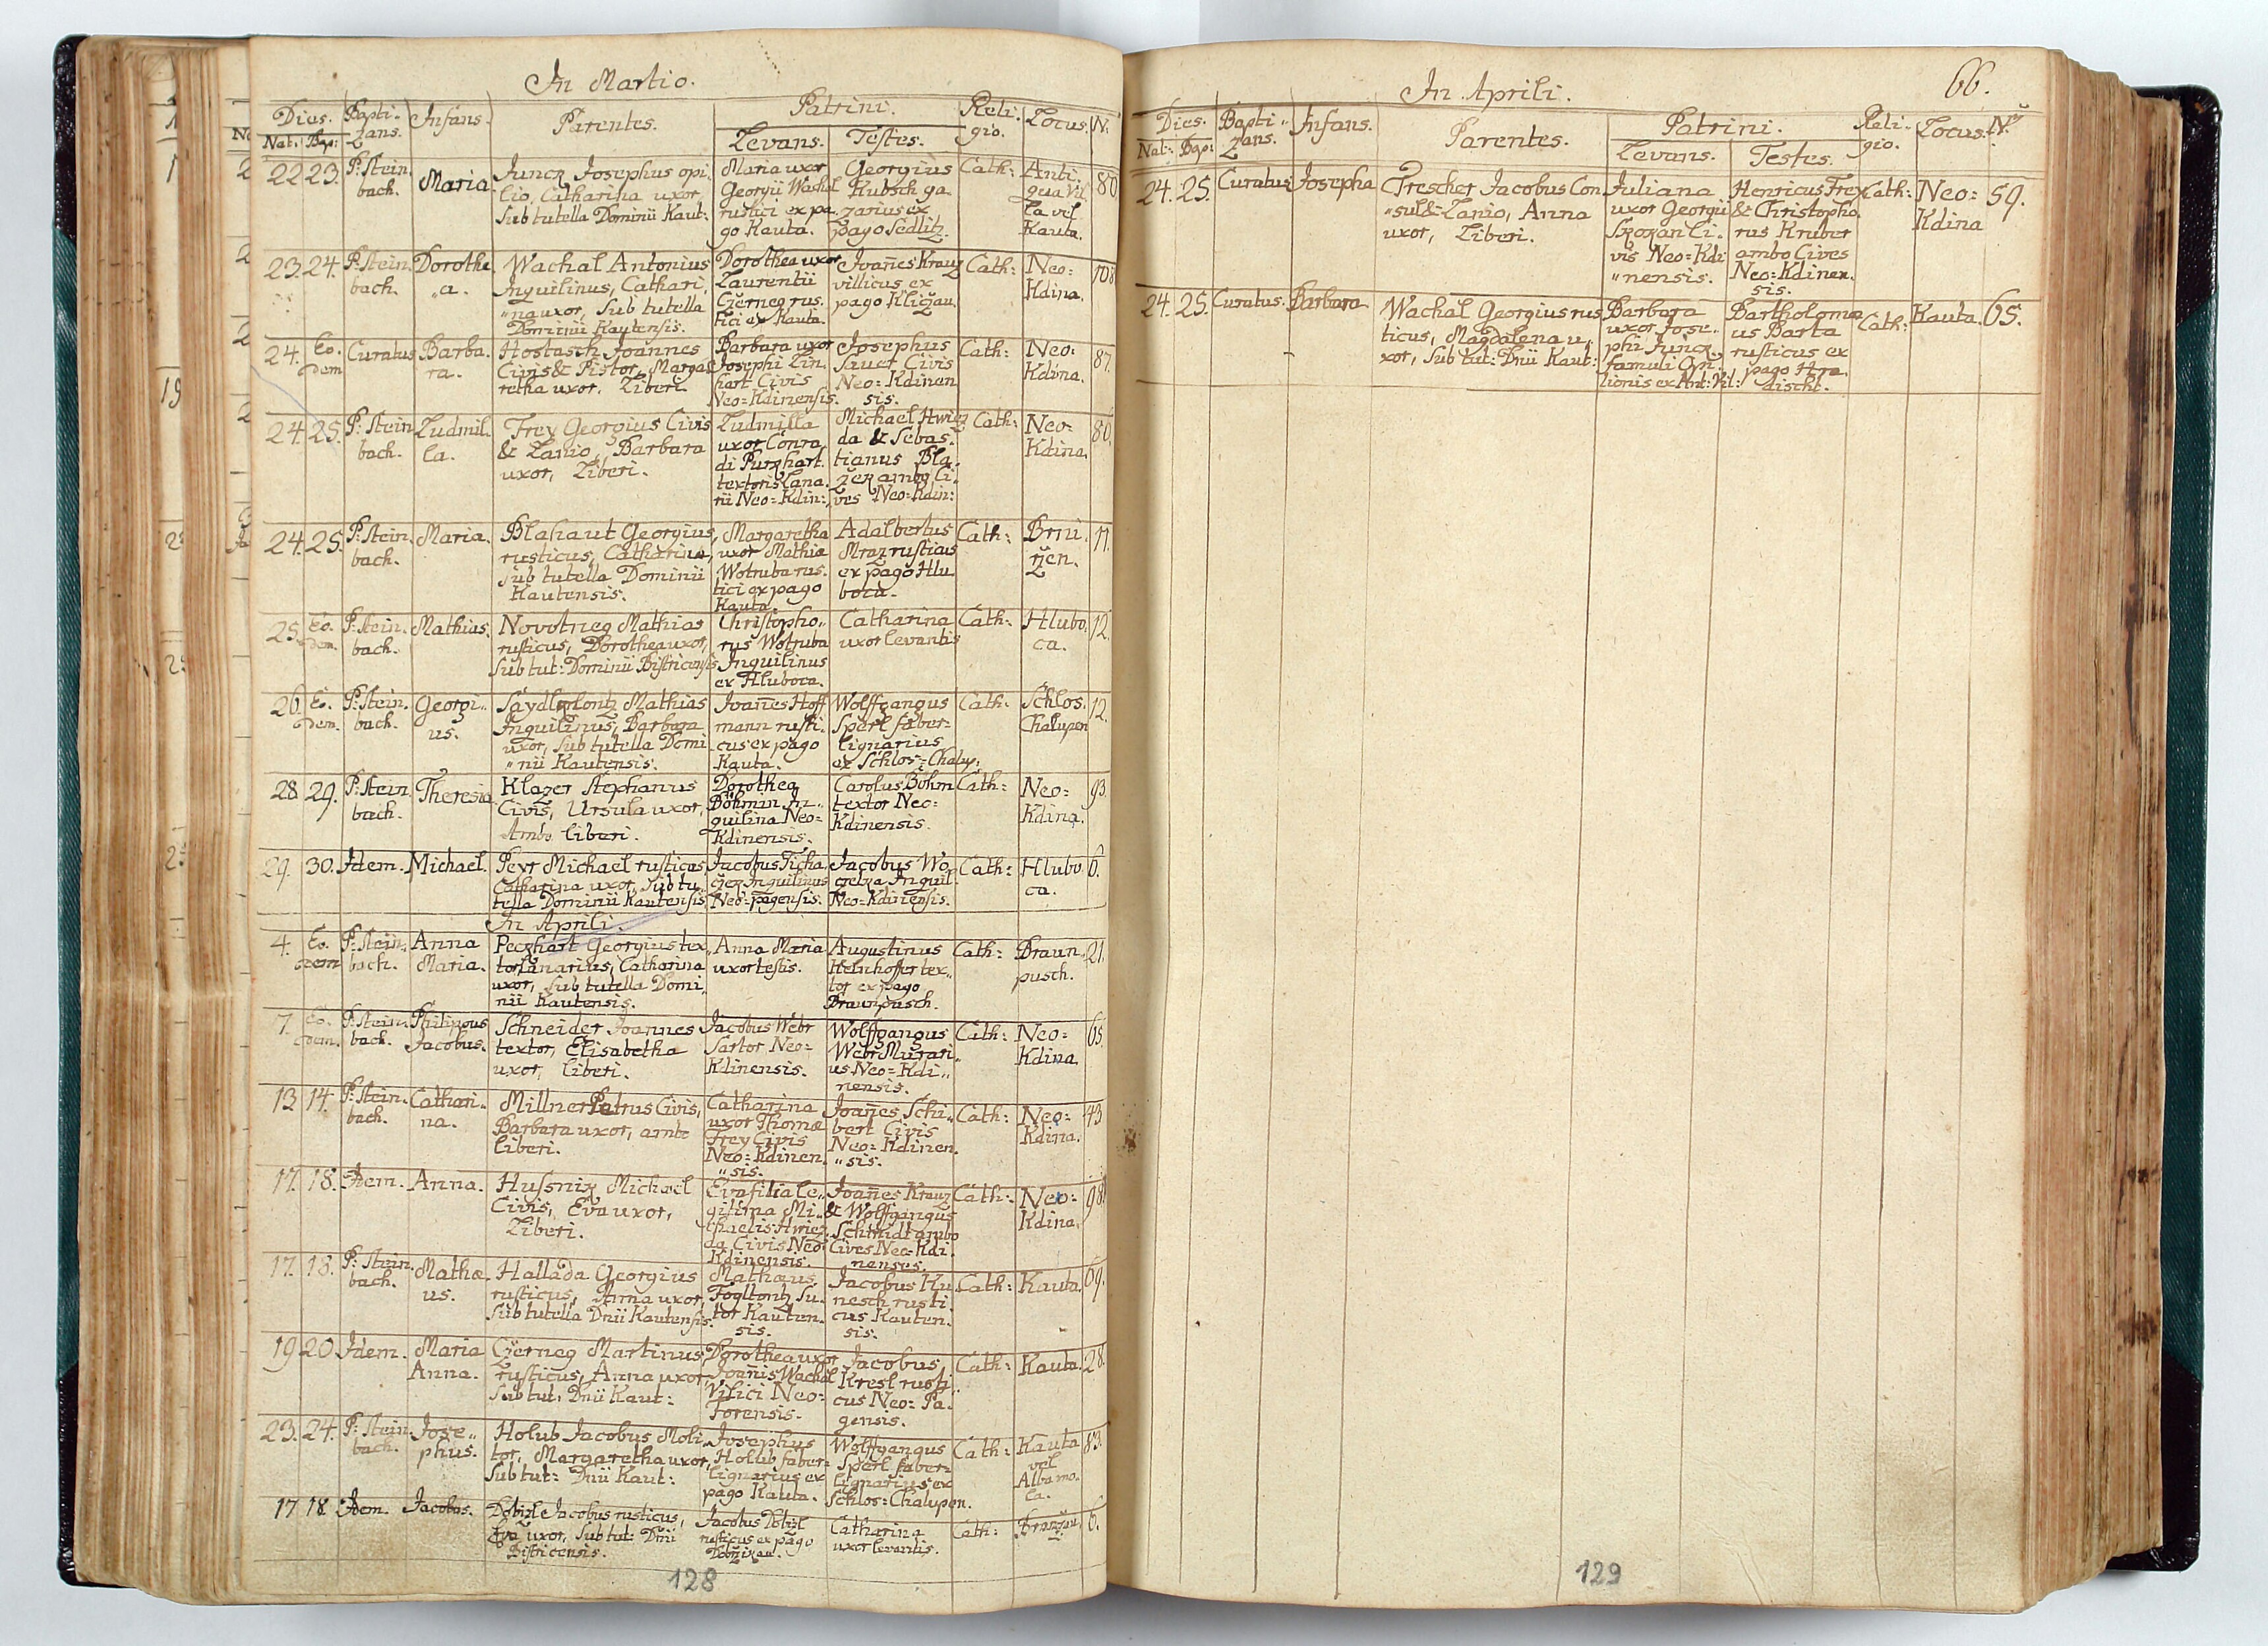 In Martio.
Dies. Bapti- Infans. Parentes. Patrini. Reli- Locus. N.
Nat: Bap: zans. Levans. Testes. gio.
22 23. P: Stein
bach.
Maria
Juncz Josephus opi-
lio, Catharina uxor,
Sub tutella Dominii Kaut:
Maria uxor
Georgii Wachal
rustici ex pa-
go Kauta.
Georgius
Kubsch ga-
zarius ex
pago Sedlitz.
Cath:
Anti-
qua Vil-
la vel
Kauta.
80
23. 24. P: Stein
bach.
Dorothe
"a.
Wachal Antonius
Inquilinus, Cathari,
"na uxor, Sub tutella
Dominii Kautensis.
Dorothea uxor
Laurentii
Czerneg rus-
tici ex Kauta.
Joanes Krauz
villicus ex
pago Kliczau.
Cath:
Neo=
Kdina.
108
24. Eo-
dem
Curatus
Barba-
ra.
Hostasch Joannes
Civis & Pistor, Marga-
retha uxor. Liberi.
Barbara uxor
Josephi Lin-
hart Civis
Neo=Kdinensis.
Josephus
Sauer Civis
Neo=Kdinen
sis.
Cath:
Neo:
Kdina.
87.
24. 25. P: Stein
bach.
Ludmil-
la.
Frey Georgius Civis
& Lanio, Barbara
uxor, Liberi.
Ludmilla
uxor Conra
di Purghart
textoris lana-
rii Neo=Kdin:
Michael Hwiez
da & Sebas-
tianus Bla-
zek ambo Ci-
ves Neo=Kdin:
Cath:
Neo-
Kdina.
80.
24. 25. P: Stein
bach.
Maria.
Blahaut Georgius,
rusticus, Catharina,
sub tutella Dominii
Kautensis.
Margaretha
uxor Mathiæ
Wotruba rus-
tici ex pago
Kauta.
Adalbertus
Mraz rusticus
ex pago Hlu
boca.
Cath:
Brni-
rzen.
11.
25. Eo-
dem.
P: Stein-
bach.
Mathias.
Novotneg Mathias
rusticus, Dorothea uxor,
Sub tut: Dominii Bistricensis
Christopho"
rus Wotruba
Inquilinus
ex Hluboca.
Catharina
uxor levantis
Cath:
Hlubo-
ca.
12.
26. Eo-
dem.
P: Stein.
bach.
Georgi"
us.
Mathias
Inquilinus, Barbara
uxor, Sub tutella Domi
"nii Kautensis.
Joanes Hoff
mann rusti-
cus ex pago
Kauta.
Wolffgangus
Sperl faber=
lignarius
ex Schlos=Chalup:
Cath:
Schlos-
Chalupen
12.
28 29. P: Stein
bach.
Theresia
Klazer Stephanus
Civis, Ursula uxor,
Ambo liberi.
Dorothea
Böhmin In"
quilina Neo=
Kdinensis.
Carolus Böhm
textor Neo=
Kdinensis.
Cath:
Neo=
Kdina.
93.
29. 30. Idem. Michael.
Peyr Michael rusticus,
Catharina uxor, Sub tu"
tella Dominii Kautensis.
Jacobus Ticha
czek Inquilinus
Neo=pagensis.
Jacobus Wo
Inquil:
Neo=Kdinensis.
Cath:
Hlubo
ca.
6.
In Aprili.
4. Eo-
dem
P: Stein.
bach.
Anna
Maria.
Peckhart Georgius tex,
tor lanarius, Catharina
uxor, Sub tutella Domi"
nii Kautensis.
Anna Maria
uxor testis.
Augustinus
Helnhoffer tex"
tor ex pago
Braunpusch.
Cath:
Braun-
pusch.
21.
7. Eo-
dem.
P: Stein-
bach.
Philippus
Jacobus.
Schneider Joannes
textor, Elisabetha
uxor, liberi.
Jacobus Webr
Sartor Neo=
Kdinensis.
Wolffgangus
Webr Murari"
us Neo=Kdi"
nensis.
Cath:
Neo=
Kdina
65.
13 14. P: Stein.
bach.
Cathari"
na.
Millner Petrus Civis,
Barbara uxor, ambo
liberi.
Catharina
uxor Thomæ
Frey Civis
Neo=Kdinen
"sis.
Joanes Schi"
bert Civis
Neo=Kdinen.
"sis.
Cath:
Neo=
Kdina.
43
17. 18. Idem. Anna.
Husnik Michael
Civis, Eva uxor,
Liberi.
Eva filia le"
gitima Mi"
chaelis Hwiez
da Civis Neo=
Kdinensis.
Joanes Krauz
& Wolffgangus
Schmidt ambo
Cives Neo=Kdi.
nenses.
Cath:
Neo=
Kdina.
98.
17. 18. P: Stein.
bach.
Mathæ-
us.
Hallada Georgius
rusticus, Anna uxor,
Sub tutella Dnii Kautensis.
Mathæus
Fogltontz Su-
tor Kauten-
sis.
Jacobus Ku
nesch rusti-
cus Kauten-
sis.
Cath:
Kauta.
69.
19 20 Idem. Maria
Anna.
Czerneg Martinus
rusticus, Anna uxor,
Sub tut: Dnii Kaut:
Dorothea uxor
Joanis Wachal
Vilici Neo=
Forensis.
Jacobus
Kresl rusti"
cus Neo=Pa-
gensis.
Cath:
Kauta.
28.
23. 24. P: Stein:
bach.
Jose"
phus.
Holub Jacobus Moli
tor, Margaretha uxor,
Sub tut: Dnii Kaut:
Josephus
Holub faber=
lignarius ex
pago Kauta.
Wolffgangus
Sperl faber=
lignarius ex
Schlos=Chalupen.
Cath:
Kauta
vel
Alba mo-
la.
83.
17 18 Idem. Jacobus.
Jacobus rusticus,
Eva uxor, Sub tut: Dnii
Bistricensis.
Jacobus
rusticus ex pago
Catharina
uxor levantis.
Cath:
6.
128
In Aprili.
66.
Dies. Bapti" Infans. Parentes. Patrini. Reli- Locus. No
Nat: Bap: zans. Levans. Testes. gio.
24. 25. Curatus Josepha
Trescher Jacobus Con
"sul & Lanio, Anna
uxor, Liberi.
Juliana
uxor Georgii
Skozan Ci-
vis Neo=Kdi
"nensis.
Henricus Frey
& Christopho-
rus Kruber
ambo Cives
Neo=Kdinen.
sis.
Cath:
Neo=
Kdina
59.
24. 25. Curatus. Barbara
Wachal Georgius rus
ticus, Magdalena u"
xor, Sub tut: Dnii Kaut:
Barbara
uxor Jose"
phi Juncz
famuli Opi-
lionis ex Ant: Vil:
Bartholomæ
us Barta
rusticus ex
pago Hra-
discht.
Cath:
Kauta.
65.
129